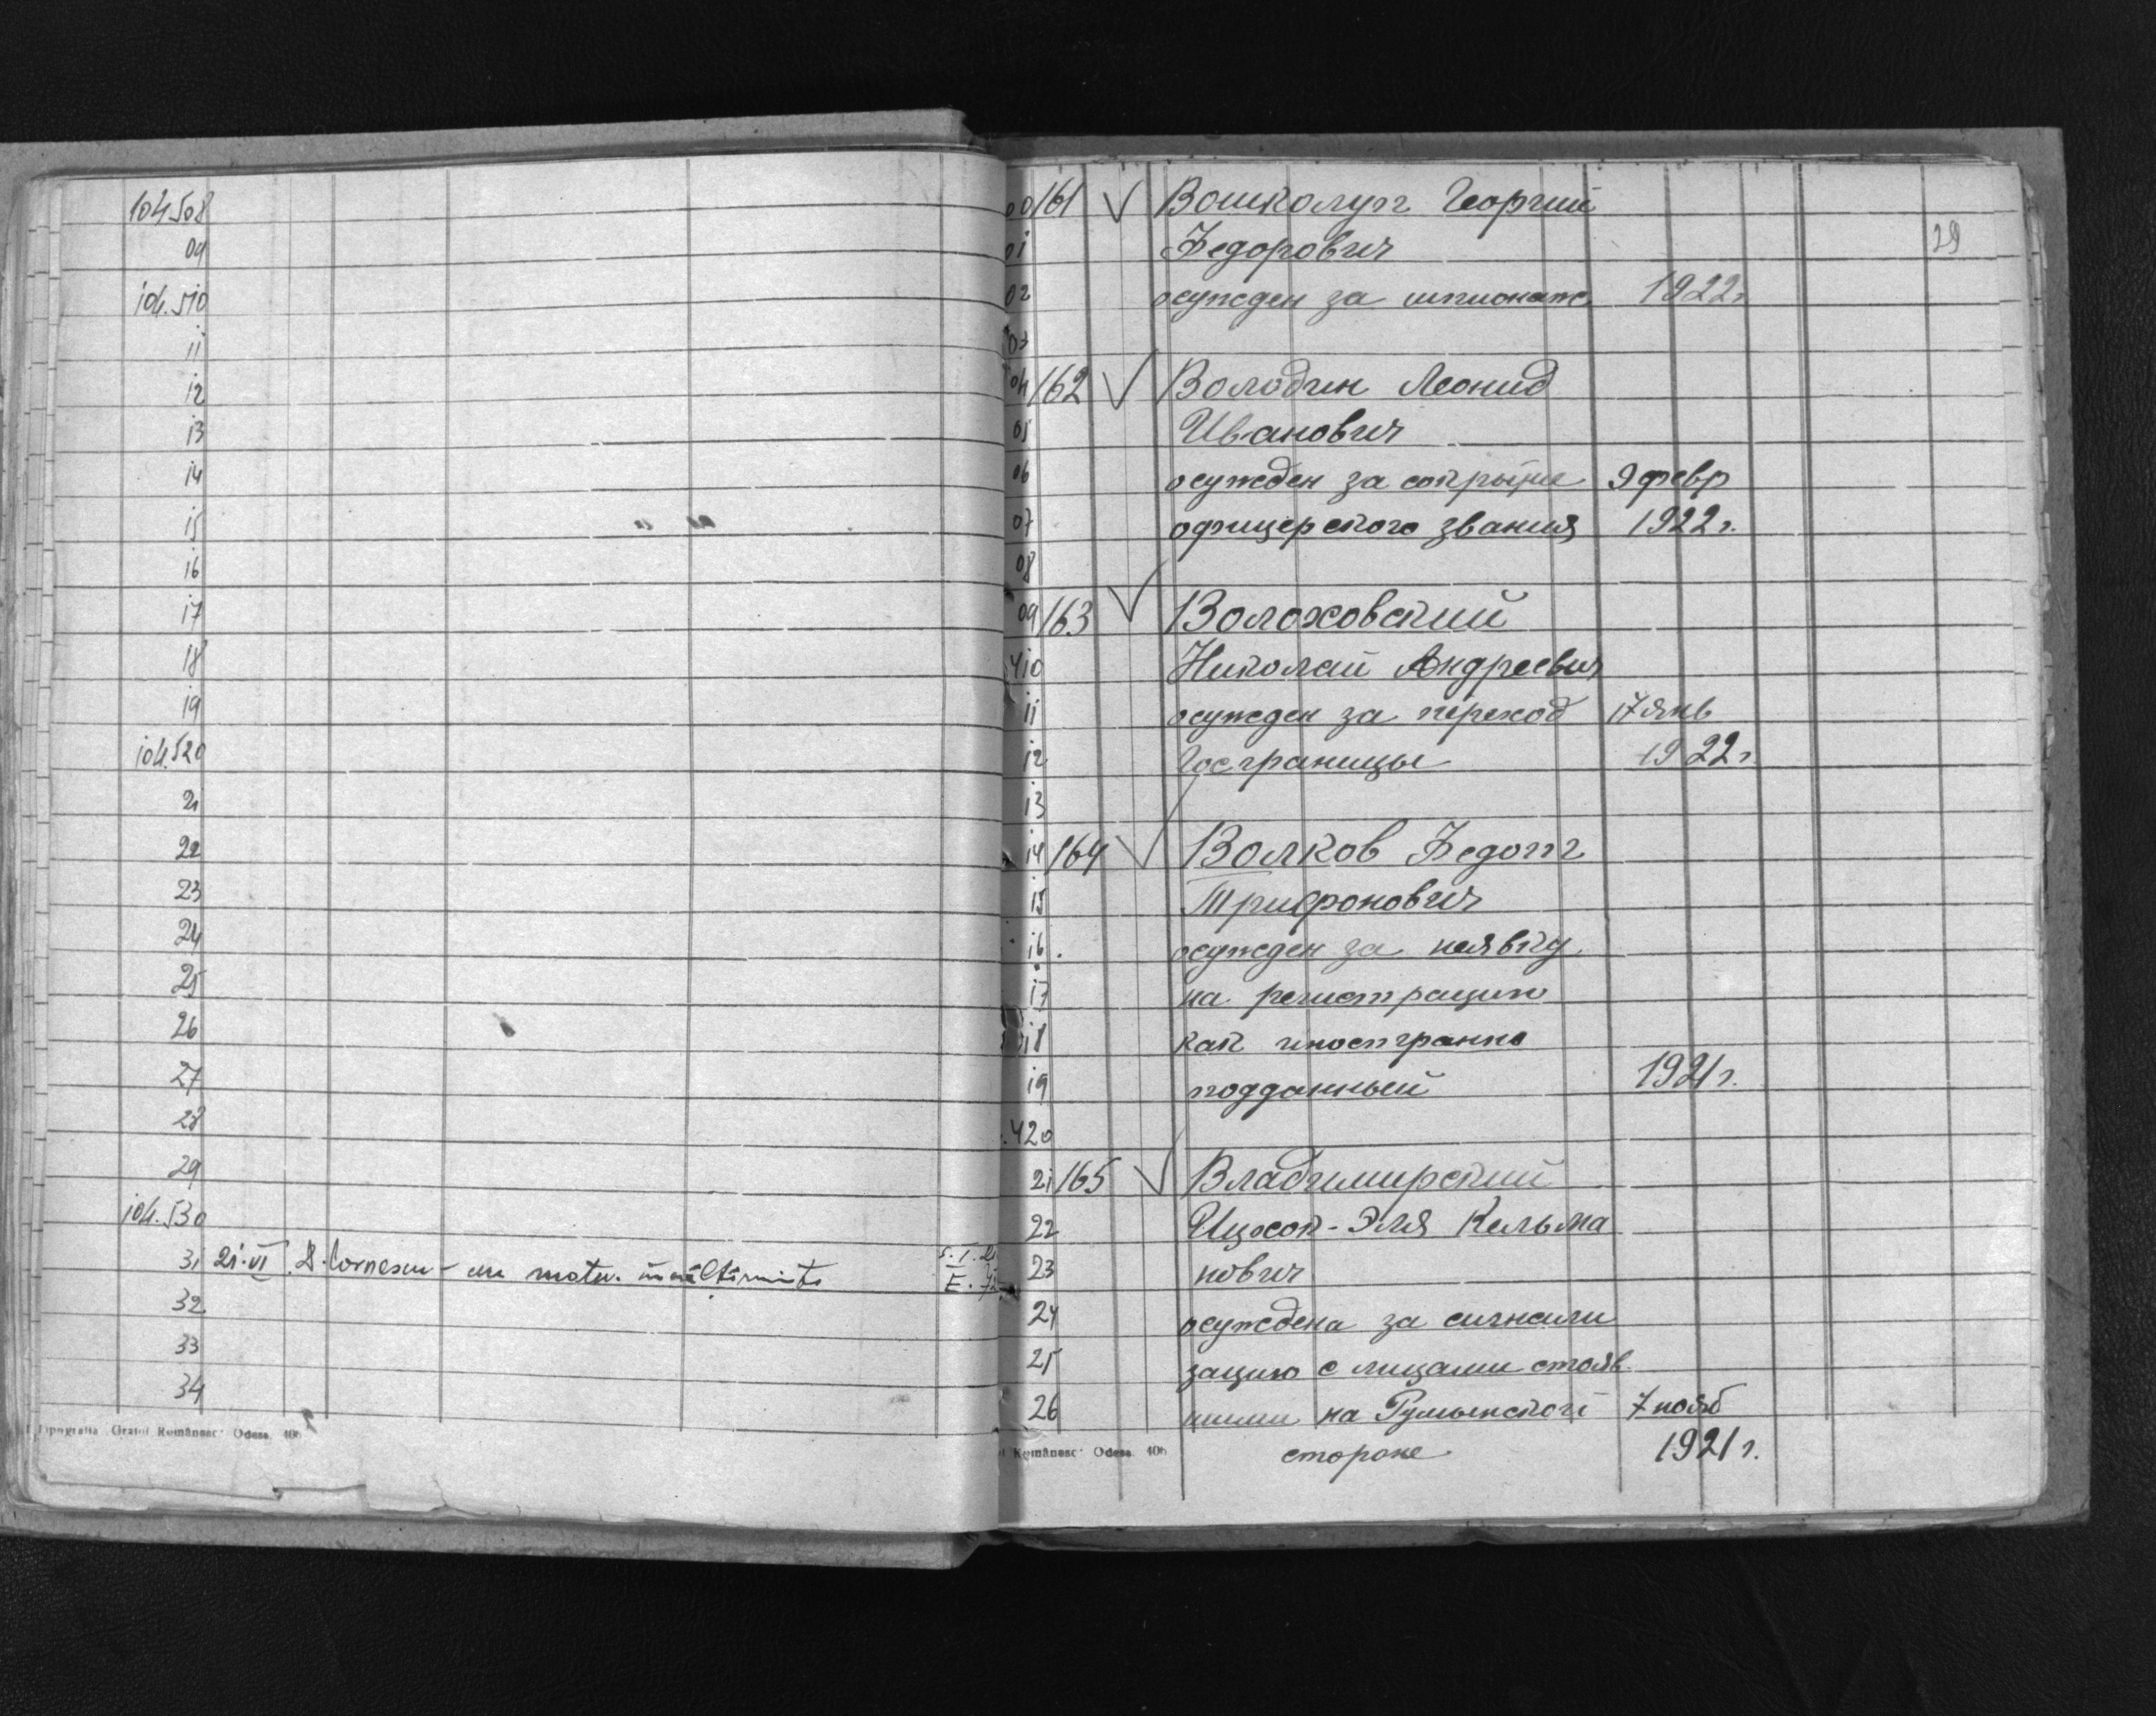 104508
09
104.510
11
12
13
14
15
16
17
18
19
104.520
21
22
23
24
25
26
27
28
29
104.530
31 21·VI
32
33
34
Tipografia Graiul Românesc Odesa
29
00 161 Вошколуп Георгий
01 Федорович
02 осужден за шпионаж 1922г
03
04 162 Володин Леонид
05 Иванович
06 осужден за сокрытие 9 февр
07 офицерского звания 1922 г.
08
09 163 Волоховский
410 Николай Андреевич
11 осужден за переход 17 янв
12 Госграницы 1922 г.
13
14 164 Волков Федот
15 Трифонович
16. осужден за неявку
17 на регистрацию
18 как иностранно
19 подданный 1921 г.
420
21 165 Владимирский
22 Ицхок-Эля Кельма
23 нович
24 осуждена за сигнали
25 зацию с лицами стояв
26 шими на Румынской 7 нояб
Românesc Odesa стороне 1921 г.